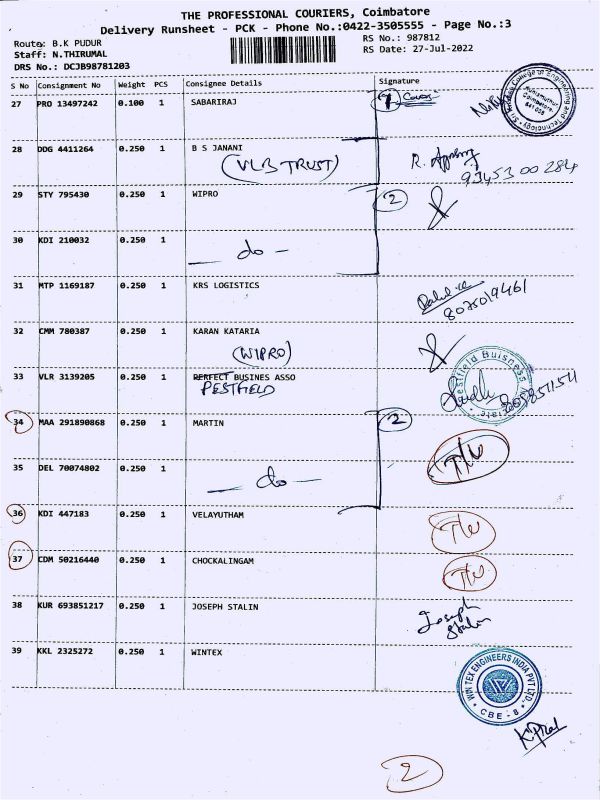 THE PROFESSIONAL COURIERS, Coimbatore
Delivery Runsheet - PCK - Phone No.:0422-3505555 - Page No.:3
Route: B.K PUDUR
RS No.: 987812
Staff: N.THIRUMAL
RS Date: 27-Jul-2022
DRS No.: DCJB98781203
S No Consignment No Weight PCS Consignee Details Signature
27 PRO 13497242 0.100 1 SABARIRAJ
28 DDG 4411264 0.250 1 B S JANANI
(VLB TRUST)
93453 00284
29 STY 795430 0.250 1 WIPRO 2
30 KDI 210032 0.250 1
— do —
31 MTP 1169187 0.250 1 KRS LOGISTICS
8075019461
32 CMM 780387 0.250 1 KARAN KATARIA
(WIPRO)
33 VLR 3139205 0.250 1 PERFECT BUSINES ASSO
PESTFIELD
34 MAA 291890868 0.250 1 MARTIN 2
T/W
35 DEL 70074802 0.250 1
— do —
36 KDI 447183 0.250 1 VELAYUTHAM T/W
37 CDM 50216440 0.250 1 CHOCKALINGAM T/W
38 KUR 693851217 0.250 1 JOSEPH STALIN Joseph
Stalin
39 KKL 2325272 0.250 1 WINTEX
WIN TEX ENGINEERS INDIA PVT LTD.,
CBE - 8
2